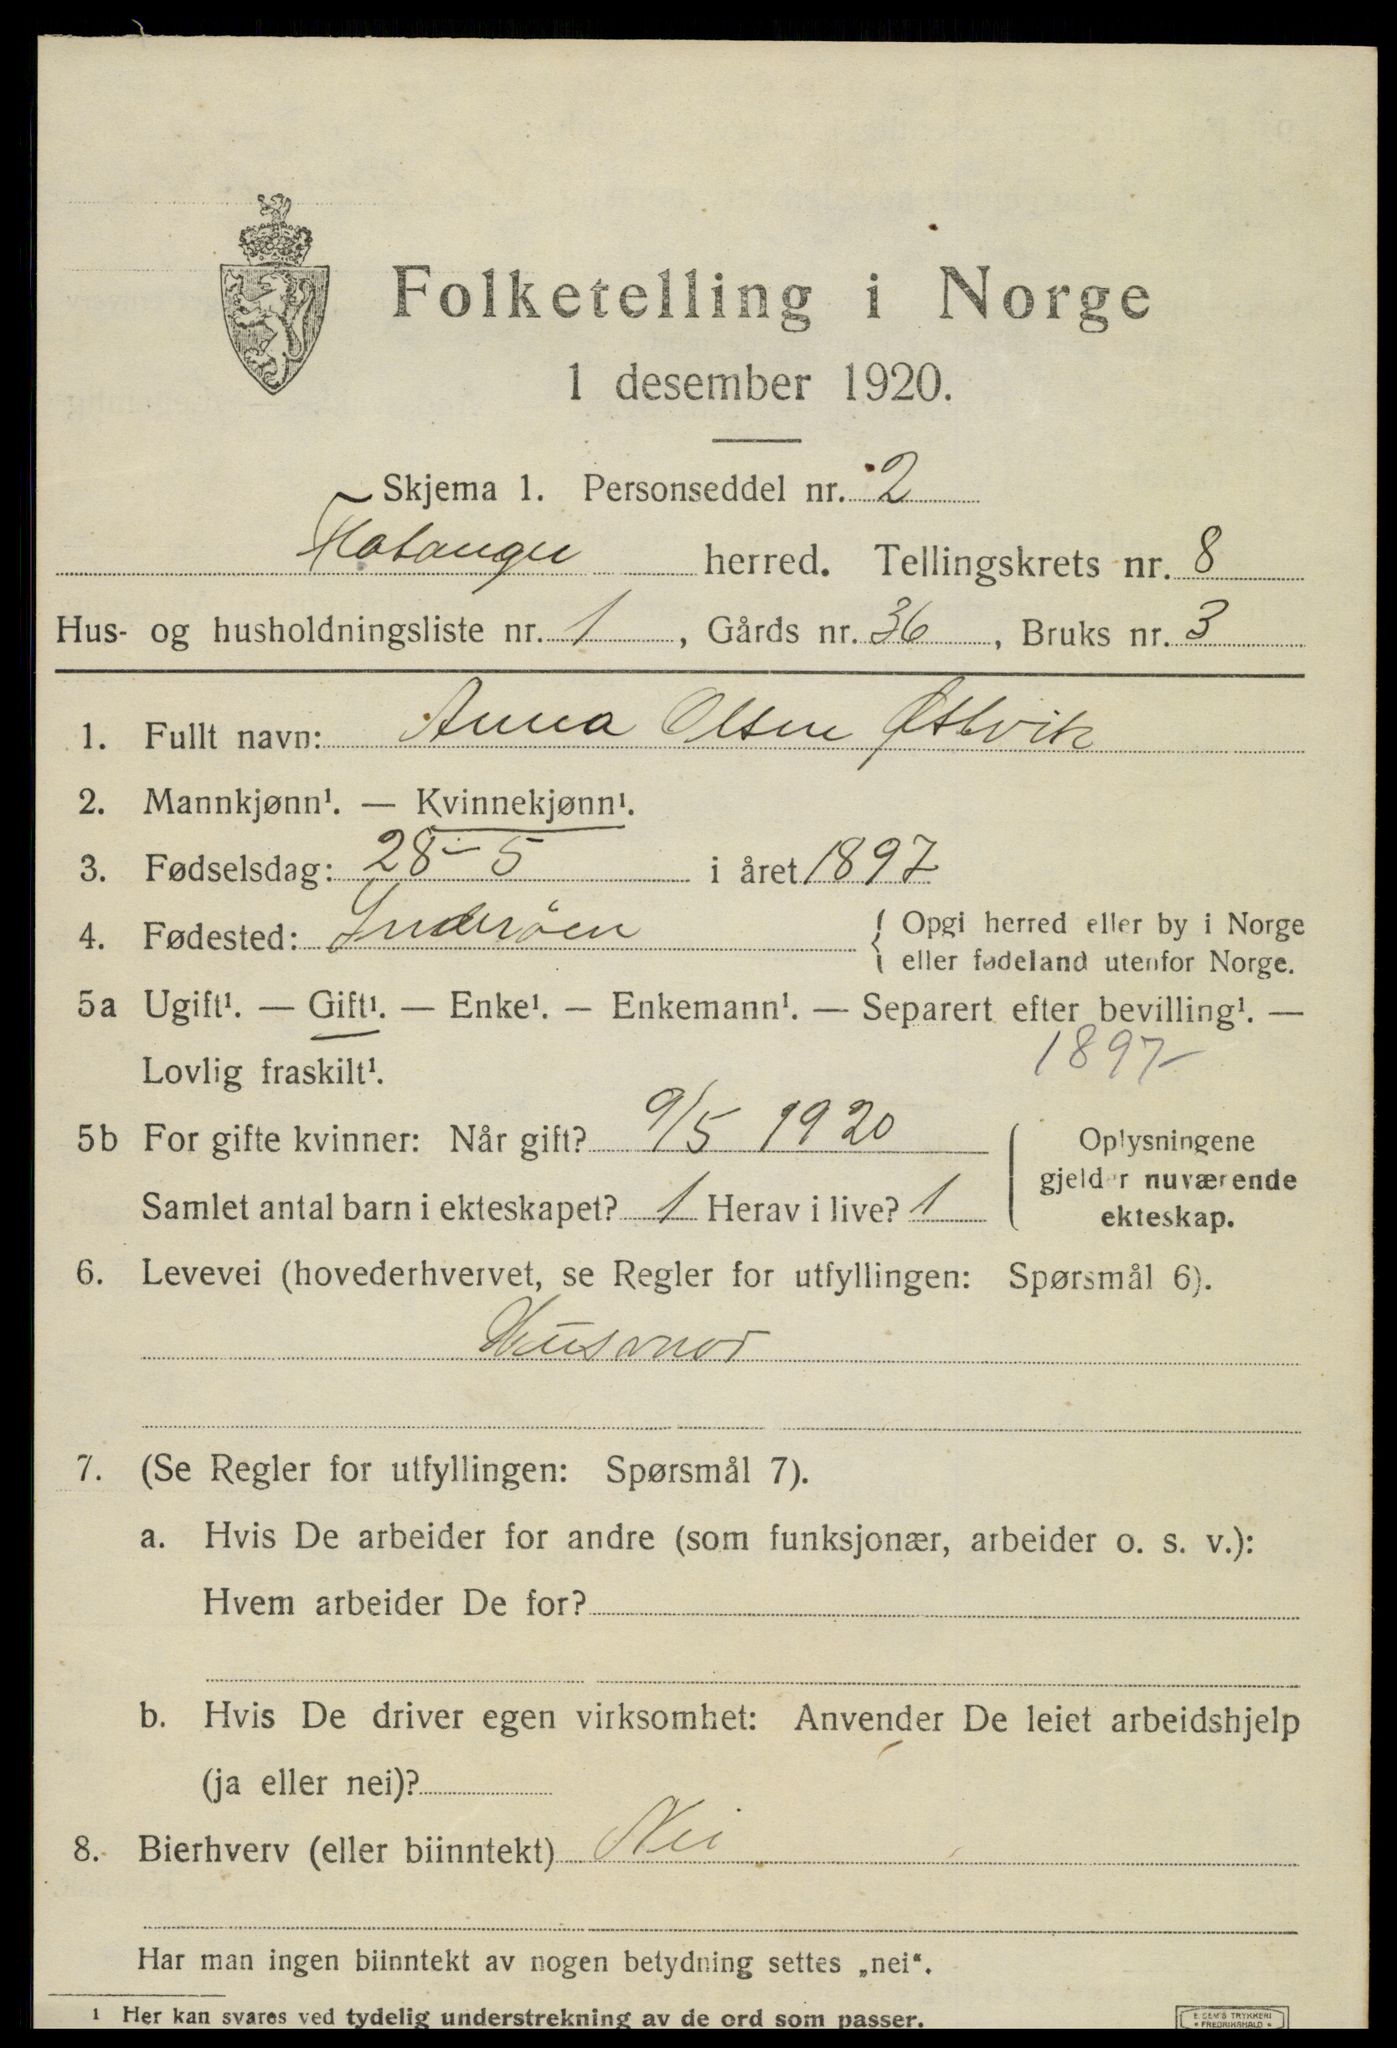 Folketelling i Norge
1 desember 1920.
Skjema 1. Personseddel nr. 2
Flatanger herred. Tellingskrets nr. 8
Hus- og husholdningsliste nr. 1, Gårds nr. 36, Bruks nr. 3
1. Fullt navn: Anna Olsen Østvik
2. Mannkjønn¹. — Kvinnekjønn¹.
3. Fødselsdag: 28-5 i året 1897
4. Fødested: Inderøen { Opgi herred eller by i Norge
eller fødeland utenfor Norge.
5a Ugift¹. — Gift¹. — Enke¹. — Enkemann¹. — Separert efter bevilling¹. —
Lovlig fraskilt¹. 1897
5b For gifte kvinner: Når gift? 9/5 1920
Samlet antal barn i ekteskapet? 1 Herav i live? 1
Oplysningene
gjelder nuværende
ekteskap.
6. Levevei (hovederhvervet, se Regler for utfyllingen: Spørsmål 6).
Husmor
7. (Se Regler for utfyllingen: Spørsmål 7).
a. Hvis De arbeider for andre (som funksjonær, arbeider o. s. v.):
Hvem arbeider De for?
b. Hvis De driver egen virksomhet: Anvender De leiet arbeidshjelp
(ja eller nei)?
8. Bierhverv (eller biinntekt) Nei
Har man ingen biinntekt av nogen betydning settes „nei“.
1 Her kan svares ved tydelig understrekning av de ord som passer.
E. SEM'S TRYKKERI
* FREDRIKSHALD *